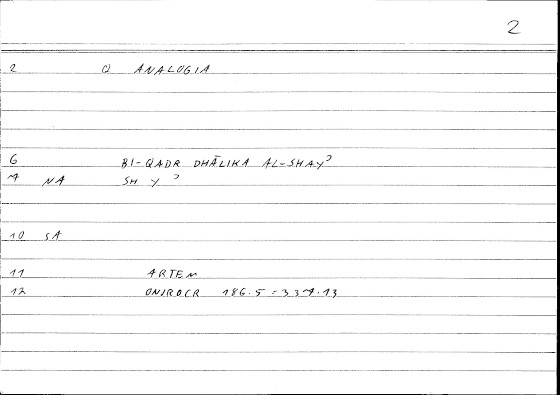 2
2 O ANALOGIA
6 BI-QADR DHĀLIKA AL-SHAYʾ
7 NA SH Y ʾ
10 SA
11 ARTEM
12 ONIROCR 186.5 = 337.13